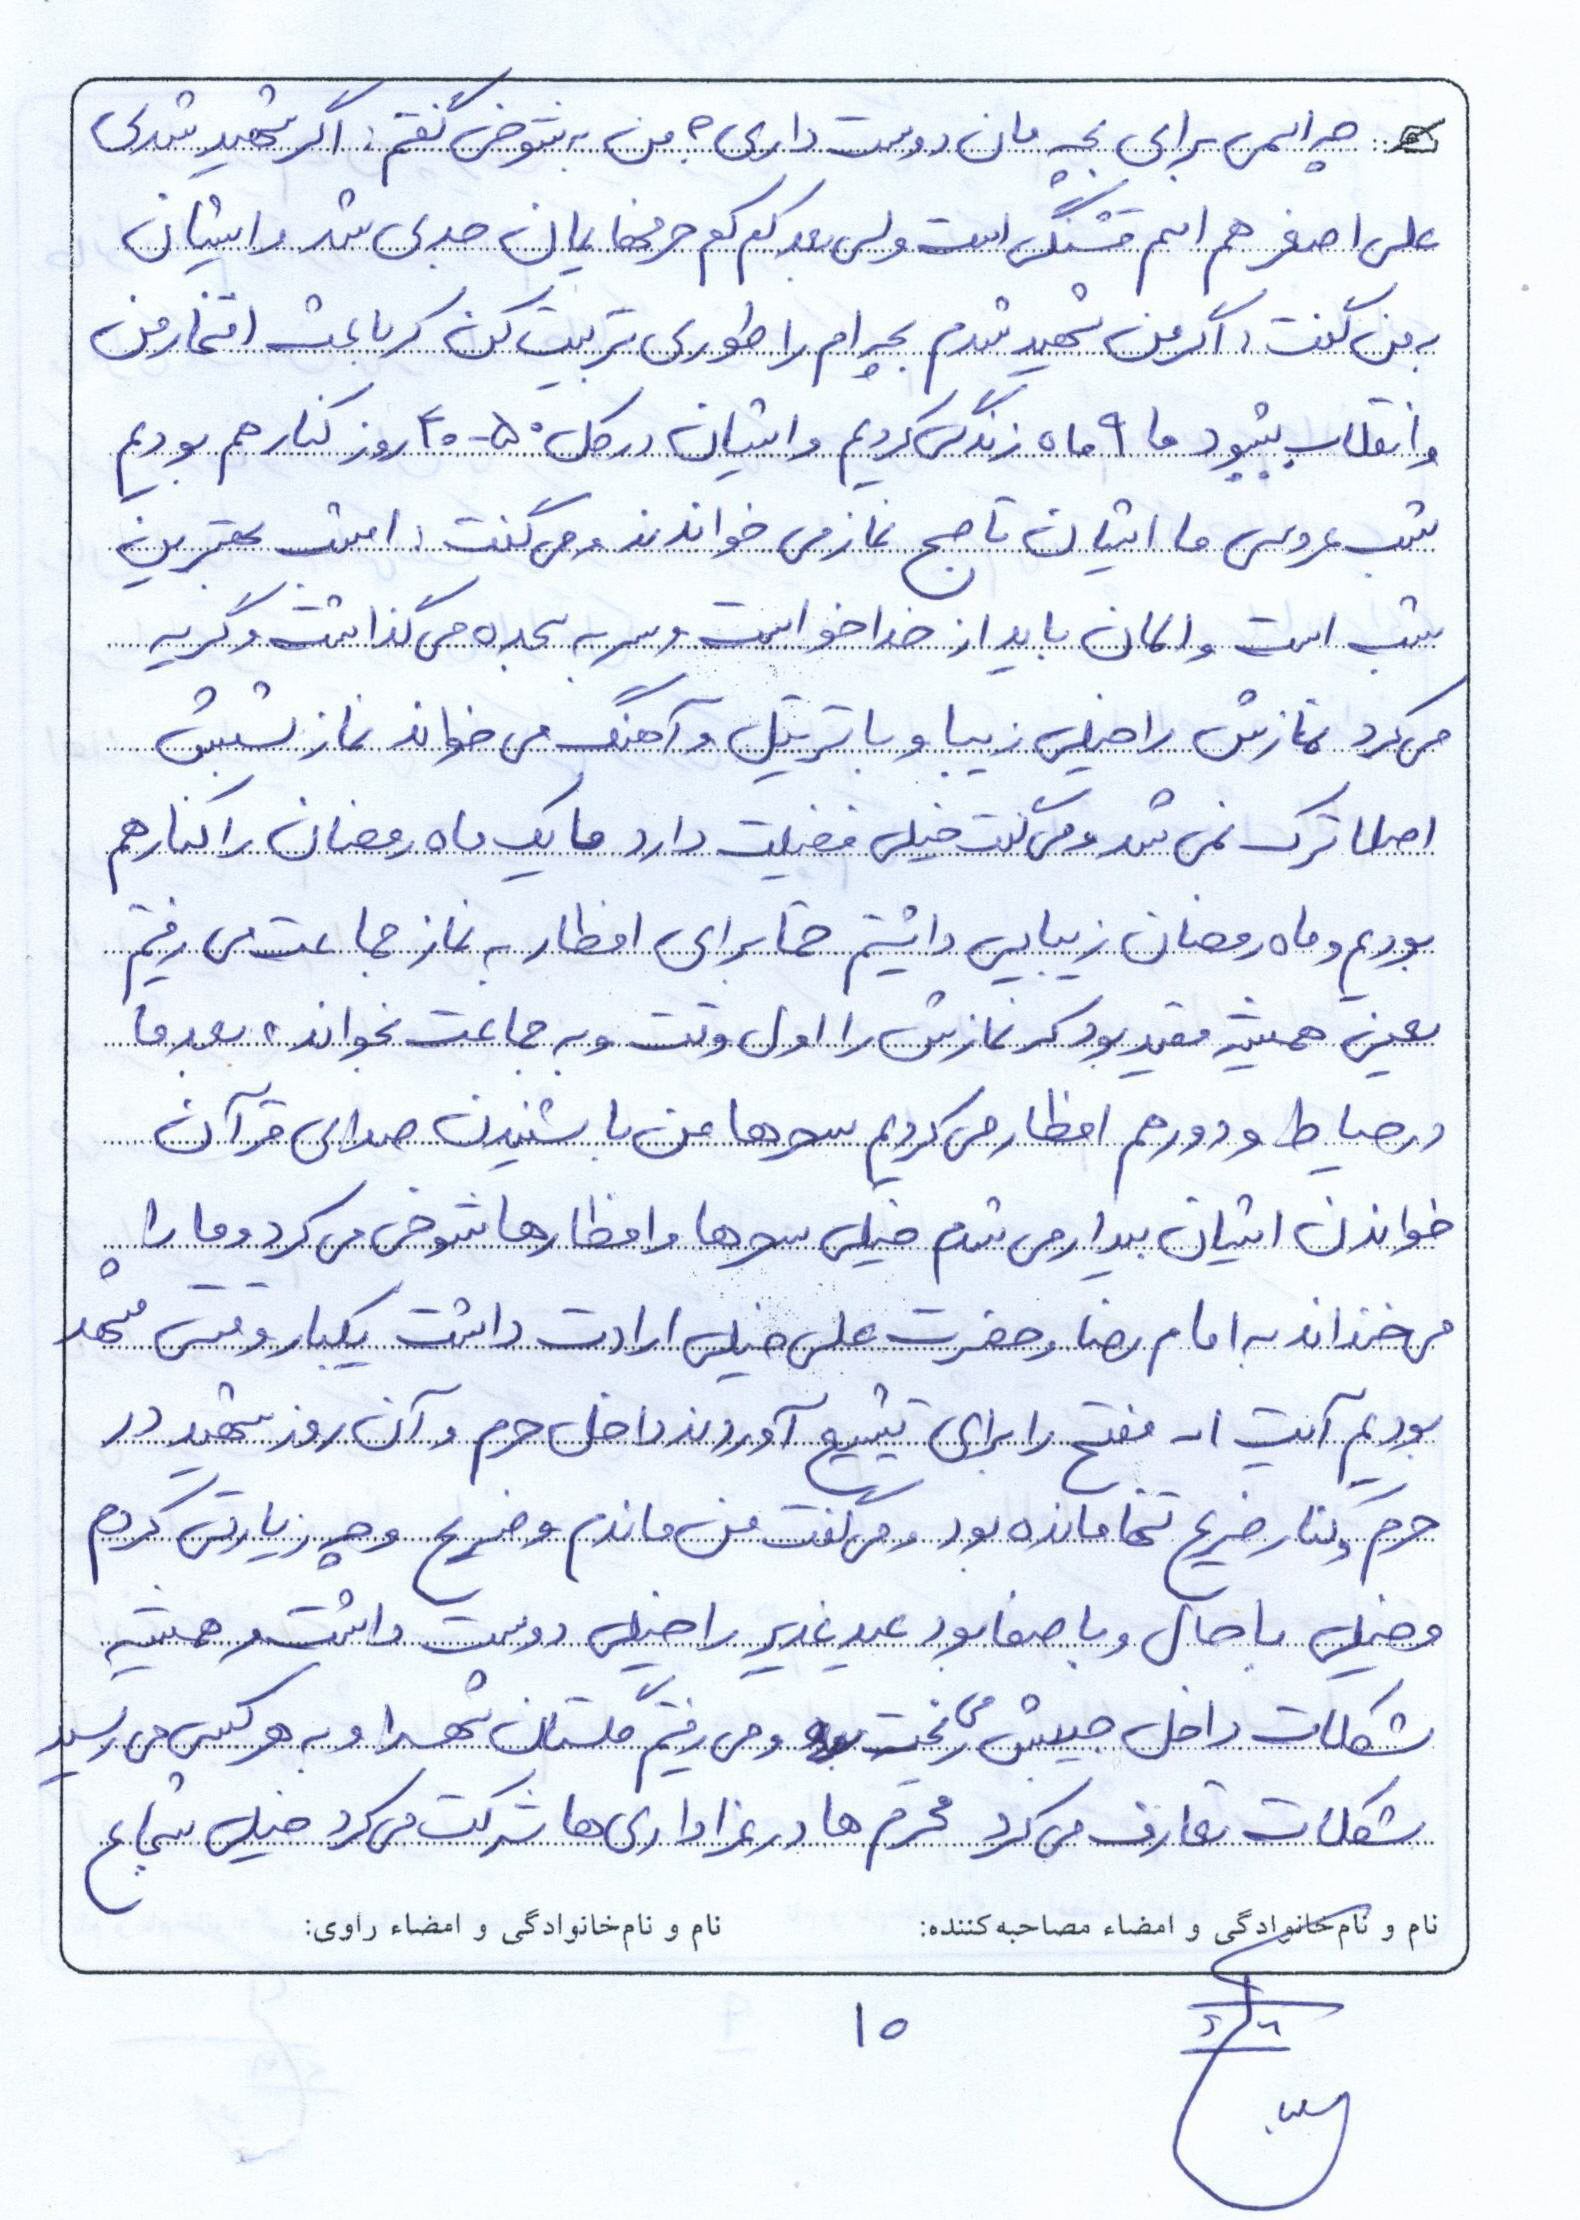 چه اسمی برای بچه مان دوست داری؟ من به شوخی گفتم: اگر شهید شدی
علی اصغر هم اسم قشنگی است ولی بعد کم کم حرفهایمان جدی شد و ایشان
به من گفت: اگر من شهید شدم بچه ام را طوری تربیت کن که باعث افتخار من
و انقلاب بشود ما ۹ ماه زندگی کردیم و ایشان در کل ۵۰-۴۰ روز کنار هم بودیم
شب عروسی ما ایشان تا صبح نماز می خواندند و می گفت: امشب بهترین
شب است و الان باید از خدا خواست و سر به سجده می گذاشت و گریه
می کرد نمازش را خیلی زیبا و با ترتیل و آهنگ می خواند نماز شبش
اصلا ترک نمی شد و می گفت خیلی فضیلت دارد ما یک ماه رمضان را کنار هم
بودیم و ماه رمضان زیبایی داشتیم حتما برای افطار به نماز جماعت می رفتیم
یعنی همیشه مقید بود که نمازش را اول وقت و به جماعت بخواند، بعد ما
در حیاط و دور هم افطار می کردیم سحرها من با شنیدن صدای قرآن
خواندن ایشان بیدار می شدم خیلی سحرها و افطارها شوخی می کرد و ما را
می خنداند به امام رضا و حضرت علی خیلی ارادت داشت یکبار وقتی مشهد
بودیم آیت ا.. مفتح را برای تشییع آوردند داخل حرم و آن روز شهید در
حرم و کنار ضریح تنها مانده بود و می گفت من ماندم و ضریح و چه زیارتی کردم
و خیلی با حال و با صفا بود عید غدیر را خیلی دوست داشت و همیشه
شکلات داخل جیبش می ریخت و می رفتیم گلستان شهدا و به هر کسی می رسید
شکلات تعارف می کرد محرم ها در عزاداری ها شرکت می کرد خیلی شجاع
نام و نام‌خانوادگی و امضاء مصاحبه‌کننده: نام و نام‌خانوادگی و امضاء راوی:
۱۵